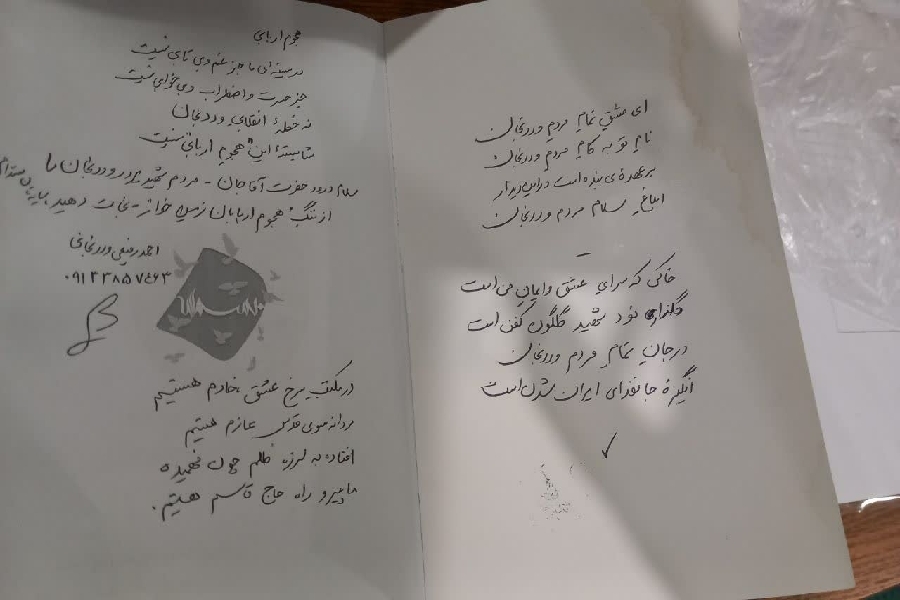 ای عشقِ تمامِ مردمِ وردنجان
نامِ تو به کامِ مردمِ وردنجان
بر عهده‌ی بنده است در این دیدار
ابلاغِ سلامِ مردم وردنجان
خاکی که سرای عشق و ایمانِ من است
گلزار شهید گلگون کفن است
در جانِ تمامِ مردم وردنجان
انگیزهٔ جانفدای ایران شدن است
هجوم اربابی
در سینه‌ی ما جز غم و بی تابی نیست
جز حسرت و اضطراب و بی خوابی نیست
نه خطهٔ انقلابیِ وردنجان
شایستهٔ این هجوم اربابی نیست
سلام و درود حضرت آقا جان - مردم شهید پرور وردنجان را
از ننگ هجوم اربابان زمین خوار نجات دهید
احمد رفیعی وردنجانی
در مکتب سرخ عشق خادم هستیم
مردانه سوی قدس عازم هستیم
افتاده به لرزه ظلم چون فهمیده
ما پیرو راه حاج قاسم هستیم.